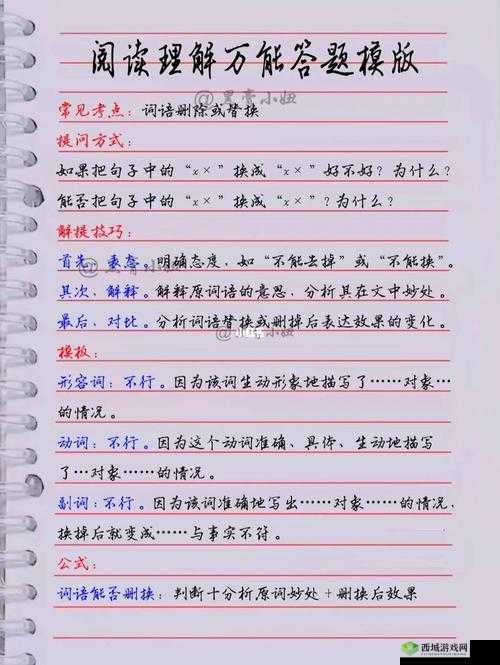 阅读理解万能答题模版
@黑膏小妞
常见考点：词语删除或替换
提问方式：
如果把句子中的“××”换成“××”好不好？为什么？
能否把句子中的“××”换成“××”？为什么？
解题技巧：
首先，表态。明确态度，如“不能去掉”或“不能换”。
@黑膏小妞
其次，解释。解释原词语的意思，分析其在文中妙处。
最后，对比。分析词语替换或删掉后表达效果的变化。
小红书
模板：
形容词：不行。因为该词生动形象地描写了……对象…
的情况。
动词：不行。因为这个动词准确、具体、生动地描写
了…对象……的情况。
副词：不行。因为该词准确地写出……对象……的情况，
换掉后就变成……与事实不符。
公式：
词语能否删换：判断十分析原词妙处+删换后效果
西域游戏网